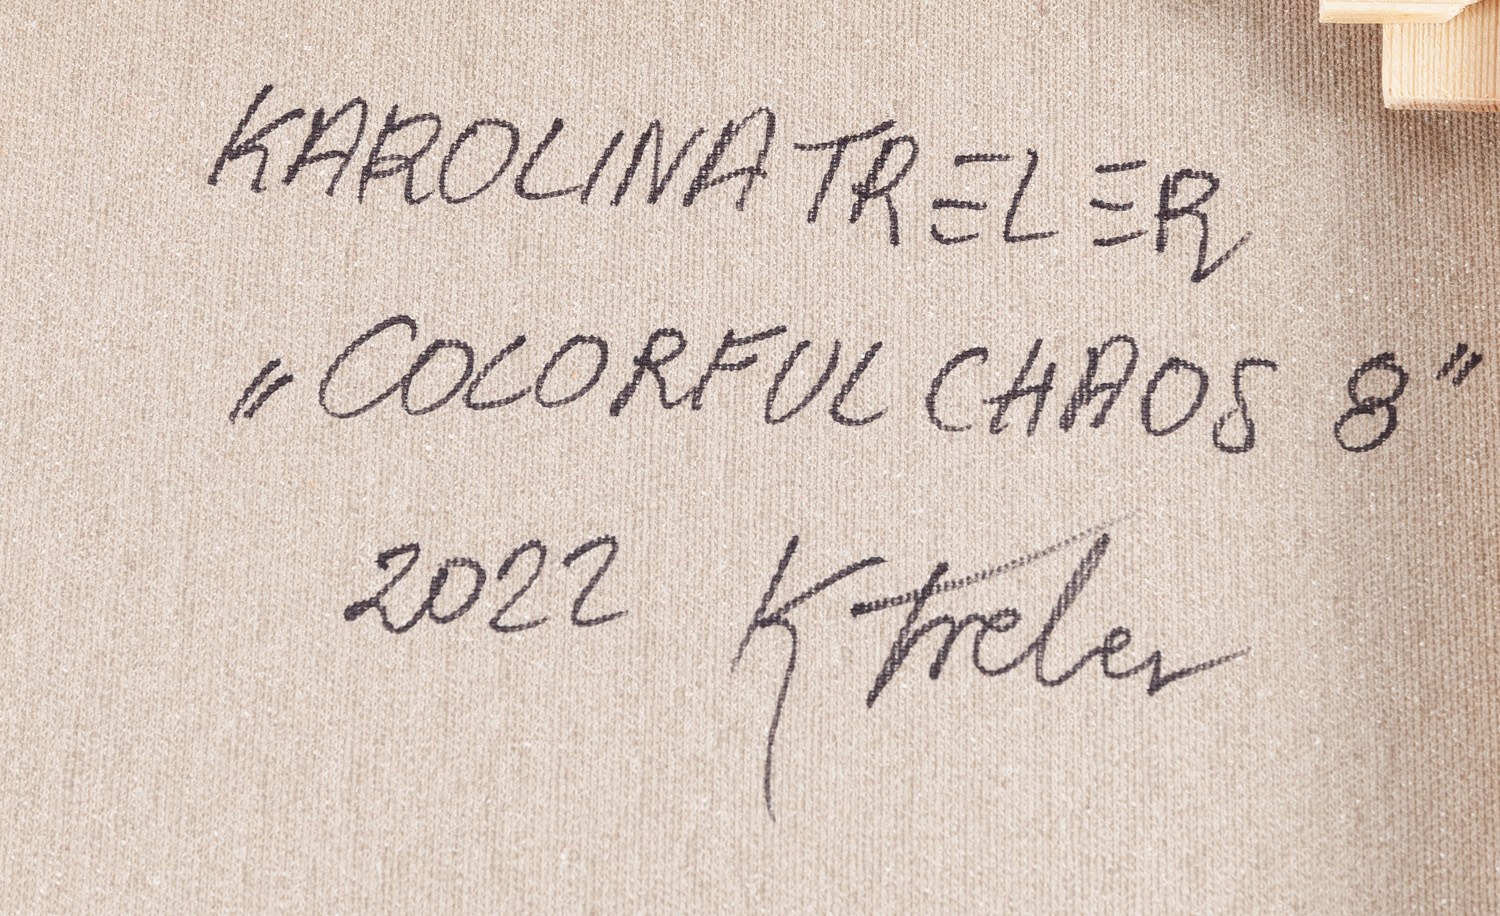 KAROLINA TRELER
„COLORFUL CHAOS 8”
2022 K Treler